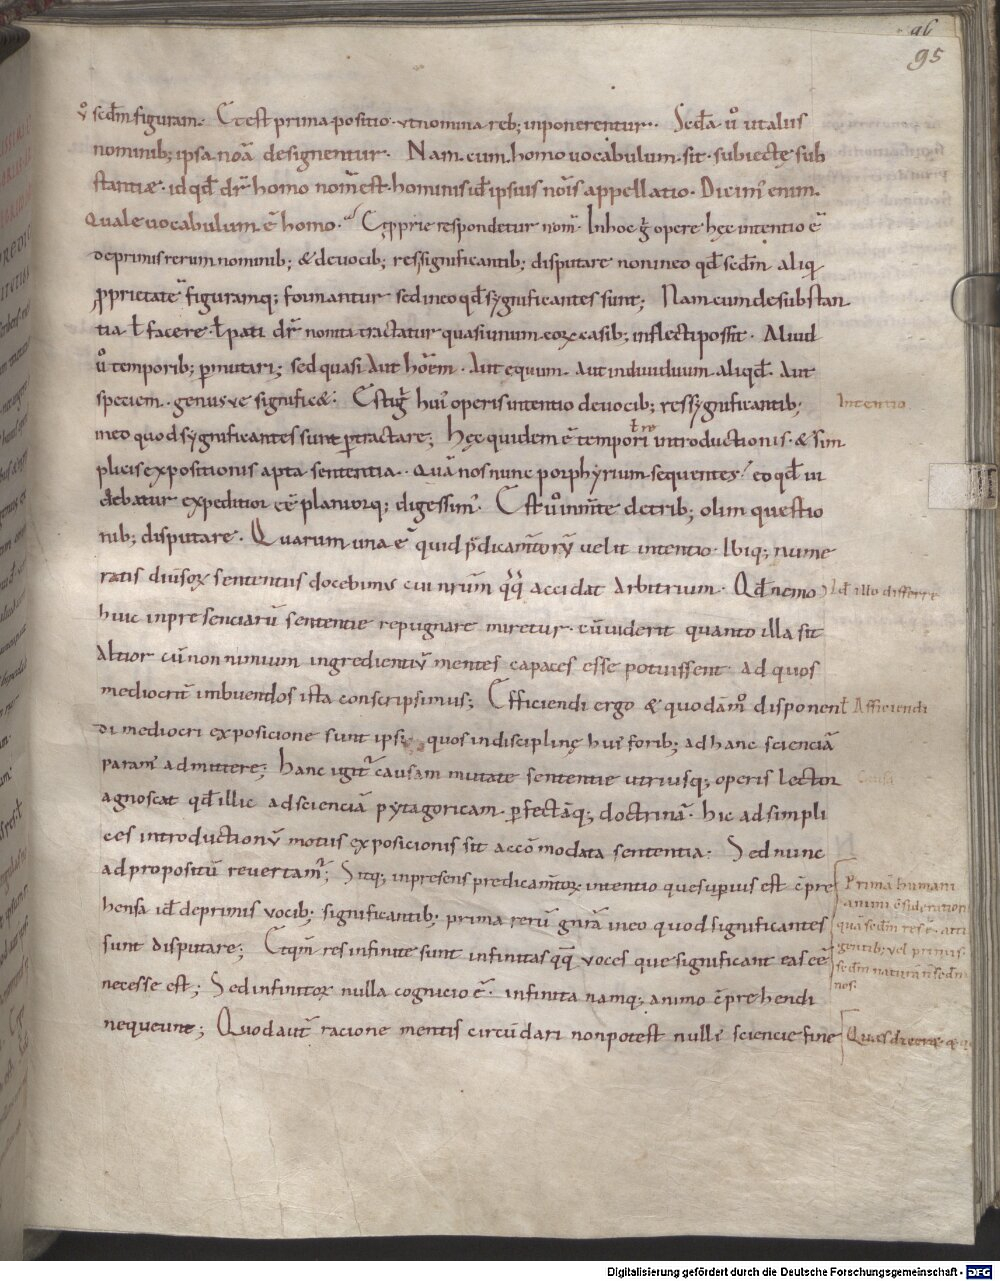 96
95
v̊ sed̄m figuram. Et est prima positio. vt nomina reb; inponerentur. Sec̄da ů ut alus
nominib; ipsa noā designentur. Nam cum homo uocabulum sit subiectę sub
stantiæ. id qd̄ dr̄ homo nom̄ est hominis id̄ ipsius nōis appellatio. Dicim' enim.
Quale uocabulum ē homo. respondetur nom̄. In hoc g̊ opere hęc intentio ē
de primis rerum nominib; & de uocib; res significantib; disputare non in eo qd̄ sed̄m aliq̄
p̄prietatē figuramq; formantur sed in eo qd̄ sygnificantes sunt; Nam cum de substan
tia ł facere ł pati dr̄ non ita tractatur quasi unum eoꝝ casib; inflecti possit. Aliud
ů temporib; p̄mutari; sed quasi Aut hōem. Aut equum. Aut induuiduum aliqd̄. Aut
speciem. genus ve signific&. Est ig̊ hui' operis intentio de uocib; res sygnificantib;
Intentio
in eo quod sygnificantes sunt p̄tractare; Hęc quidem ē tempori introductionis. & sim
plicis expositionis apta sententia. Quā nos nunc porphyrium sequentes. eo qd̄ ui
debatur expeditior eē planiorq; digessim'. Est ů in m̄te de trib; olim questio
nib; disputare. Quarum una ē quid p̄dicam̄torū uelit intentio. Ibiq; nume
ratis diuisoꝝ sententiis docebimus cui nr̄um qq̄ accidat Arbitrium. Qd̄ nemo
Id ē illo differre
huic inpresenciarū sententie repugnare miretur. cū uiderit quanto illa sit
Altior cui non nimium ingredientiū mentes capaces esse potuissent ad quos
mediocrit̄ imbuendos ista conscripsimus; Efficiendi ergo & quodām̊ disponen
ł Afficiendi
di mediocri exposicione sunt ipsi quos in disciplinę hui' forib; ad hanc scienciā
param' admittere; Hanc igit̄ causam mutate sententie utriusq; operis lector
Causa
agnoscat qd̄ illic ad scienciā pytagoricam. p̄fectāq; doctrinā. hic ad simpli
ces introductionū motus exposicionis sit accōmodata sententia. Sed nunc
ad propositū reuertam̄; Sitq; in presens predicam̄toꝝ intentio que superius est c̄pre
hensa id̄ de primis uocib; significantib; prima rerū gn̄ra in eo quod significantes
sunt disputare; Et qm̄ res infinite sunt infinitas qq̄ uoces que significant eas eē
necesse est; Sed infinitoꝝ nulla cognicio ē. infinita namq; animo c̄prehendi
nequeunt; Quod aut̄ racione mentis circūdari non potest nulli' sciencie fine
Primā humani
animi c̄sideration
quā sed̄m res ē. atti
gentib; uel primis
sed̄m naturā ñ sed̄m
nos.
Digitalisierung gefördert durch die Deutsche Forschungsgemeinschaft - DFG